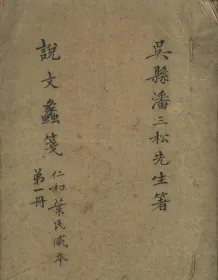 吳縣潘三松先生箸
說文蠡箋
仁和葉氏臧本
第一冊